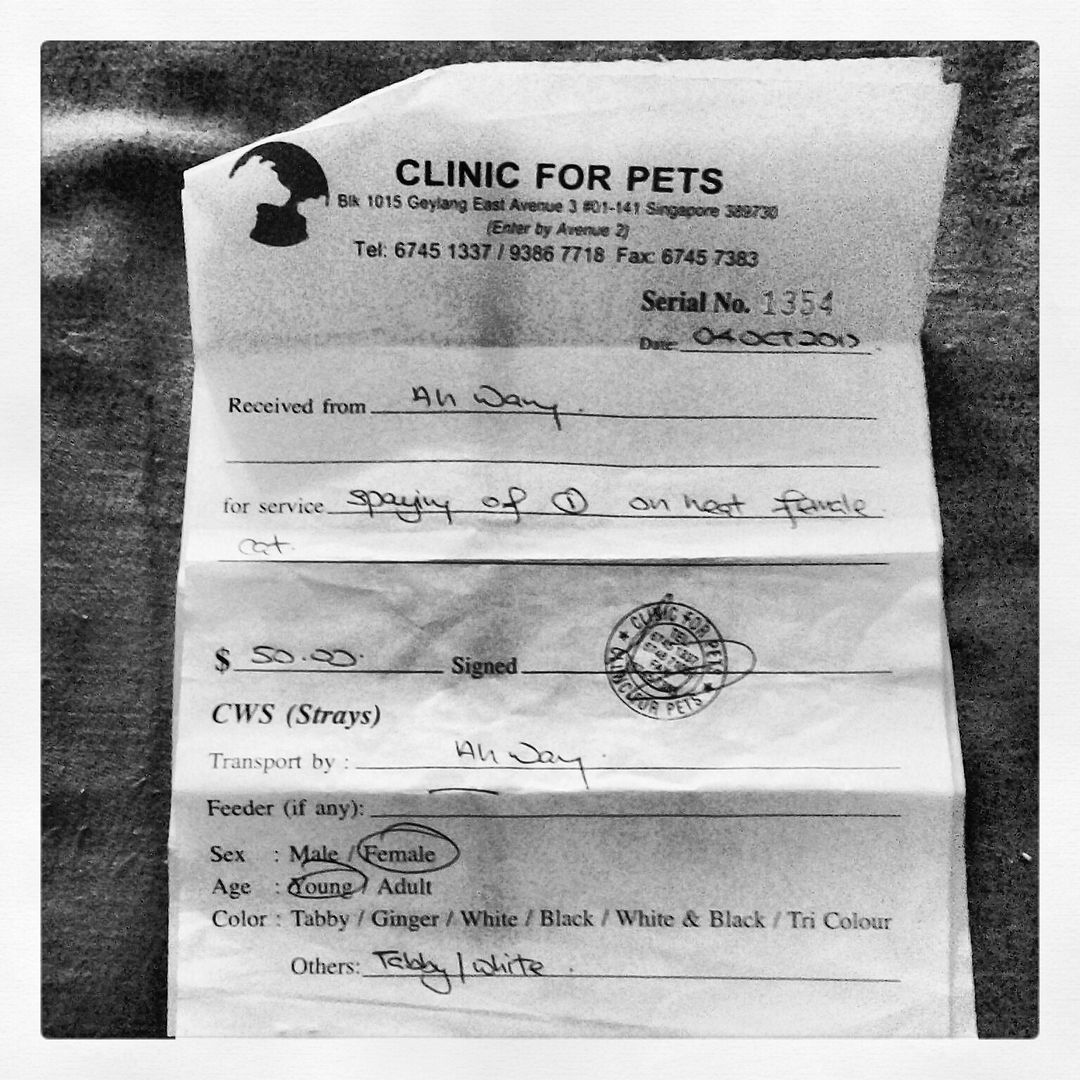 CLINIC FOR PETS
Blk 1015 Geylang East Avenue 3 #01-141 Singapore 389730
(Enter by Avenue 2)
Tel: 6745 1337 / 9386 7718 Fax: 6745 7383
Serial No. 1354
Date: 04 OCT
Received from Ah Wang.
for service spaying of ① on heat female
cat.
$ 50.00. Signed
CLINIC FOR PETS
TEL
6745 1337
FAX
CLINIC FOR PETS
CWS (Strays)
Transport by : Ah Wang.
Feeder (if any):
Sex : Male / Female
Age : Young / Adult
Color : Tabby / Ginger / White / Black / White & Black / Tri Colour
Others: Tabby/white.